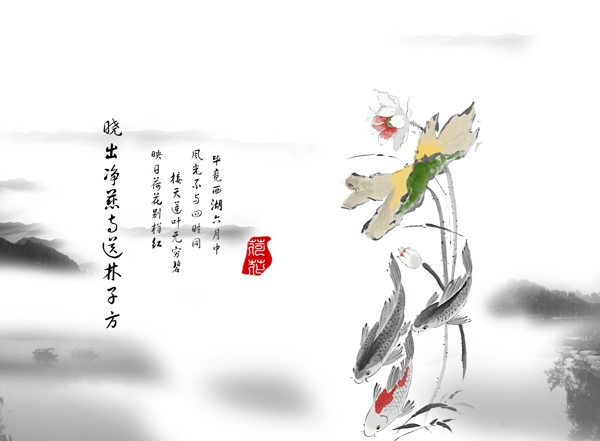 晓出净慈寺送林子方
毕竟西湖六月中
风光不与四时同
接天莲叶无穷碧
映日荷花别样红
荷花